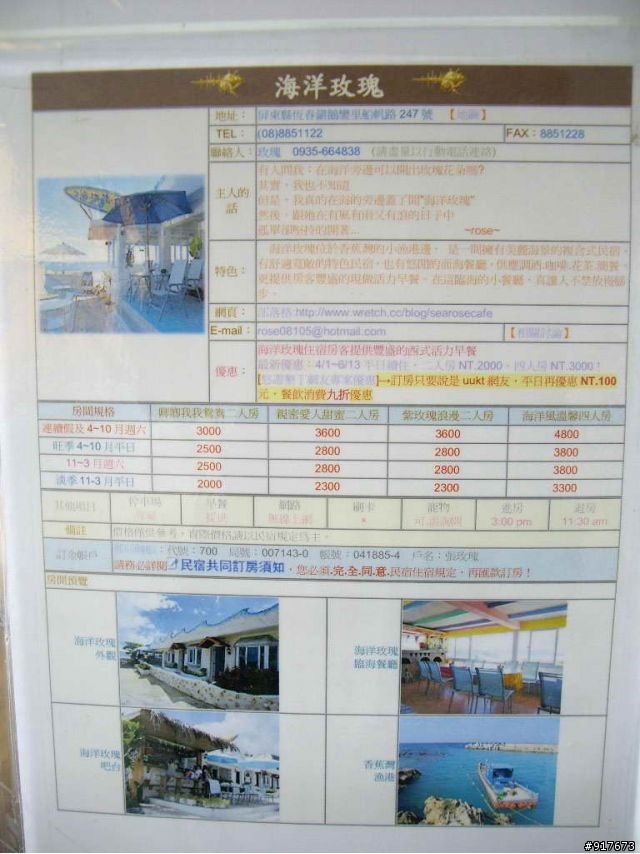 海洋玫瑰
地址： 屏東縣恆春鎮鵝鑾里船帆路 247 號 【地圖】
TEL： (08)8851122 FAX：8851228
聯絡人： 玫瑰 0935-664838 (請盡量以行動電話連絡)
主人的話
有人問我：在海洋旁邊可以開出玫瑰花朵嗎?
其實，我也不知道
但是，我真的在海的旁邊蓋了間"海洋玫瑰"
然後，跟她在有風有雨又有浪的日子中
~rose~
特色：
海洋玫瑰位於香蕉灣的小漁港邊， 是一間擁有美麗海景的複合式民宿
有舒適寬敞的特色民宿，也有悠閒的面海餐廳，供應調酒.咖啡.花茶.簡餐
更提供房客豐盛的現做活力早餐。在這臨海的小餐廳，真讓人不禁放慢腳
步。
網頁： 部落格:http://www.wretch.cc/blog/searosecafe
E-mail： rose08105@hotmail.com 【相關討論】
優惠：
海洋玫瑰住宿房客提供豐盛的西式活力早餐
最新優惠：4/1~6/13 平日續住，二人房 NT.2000、四人房 NT.3000；
[悠遊墾丁網友專案優惠]→訂房只要說是 uukt 網友，平日再優惠 NT.100
元，餐飲消費九折優惠
房間規格 卿卿我我鴛鴦二人房 親密愛人甜蜜二人房 紫玫瑰浪漫二人房 海洋風溫馨四人房
連續假及 4~10 月週六 3000 3600 3600 4800
旺季 4~10 月平日 2500 2800 2800 3800
11~3 月週六 2500 2800 2800 3800
淡季 11-3 月平日 2000 2300 2300 3300
其他項目 停車場 早餐 網路 刷卡 寵物 進房 退房
提供 無線上網 × 可,請詢問 3:00 pm 11:30 am
備註 價格僅供參考，實際價格請以民宿規定為主。
訂金帳戶 代號：700 局號：007143-0 帳號：041885-4 戶名：張玫瑰
請務必詳閱→民宿共同訂房須知，您必須.完.全.同.意.民宿住宿規定，再匯款訂房！
房間預覽
海洋玫瑰
外觀
海洋玫瑰
臨海餐廳
海洋玫瑰
吧台
香蕉灣
漁港
#917673